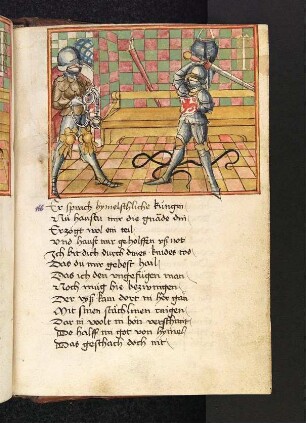 Er sprach hymelschliche kungen
Nu hastu mir die gnade din
Erzögt wol ein teil
Vnd hast mir geholffen vß not
Ich bit dich durch dines kindes tod
Das du mir gebest hail
Das ich den vngefügen man
Noch müg hie bezwingen
Der vß kam dort in her gan
Mit sinen stächlinen
Dar in wolt in
Do halff im got von hymel
Das geschach doch nit